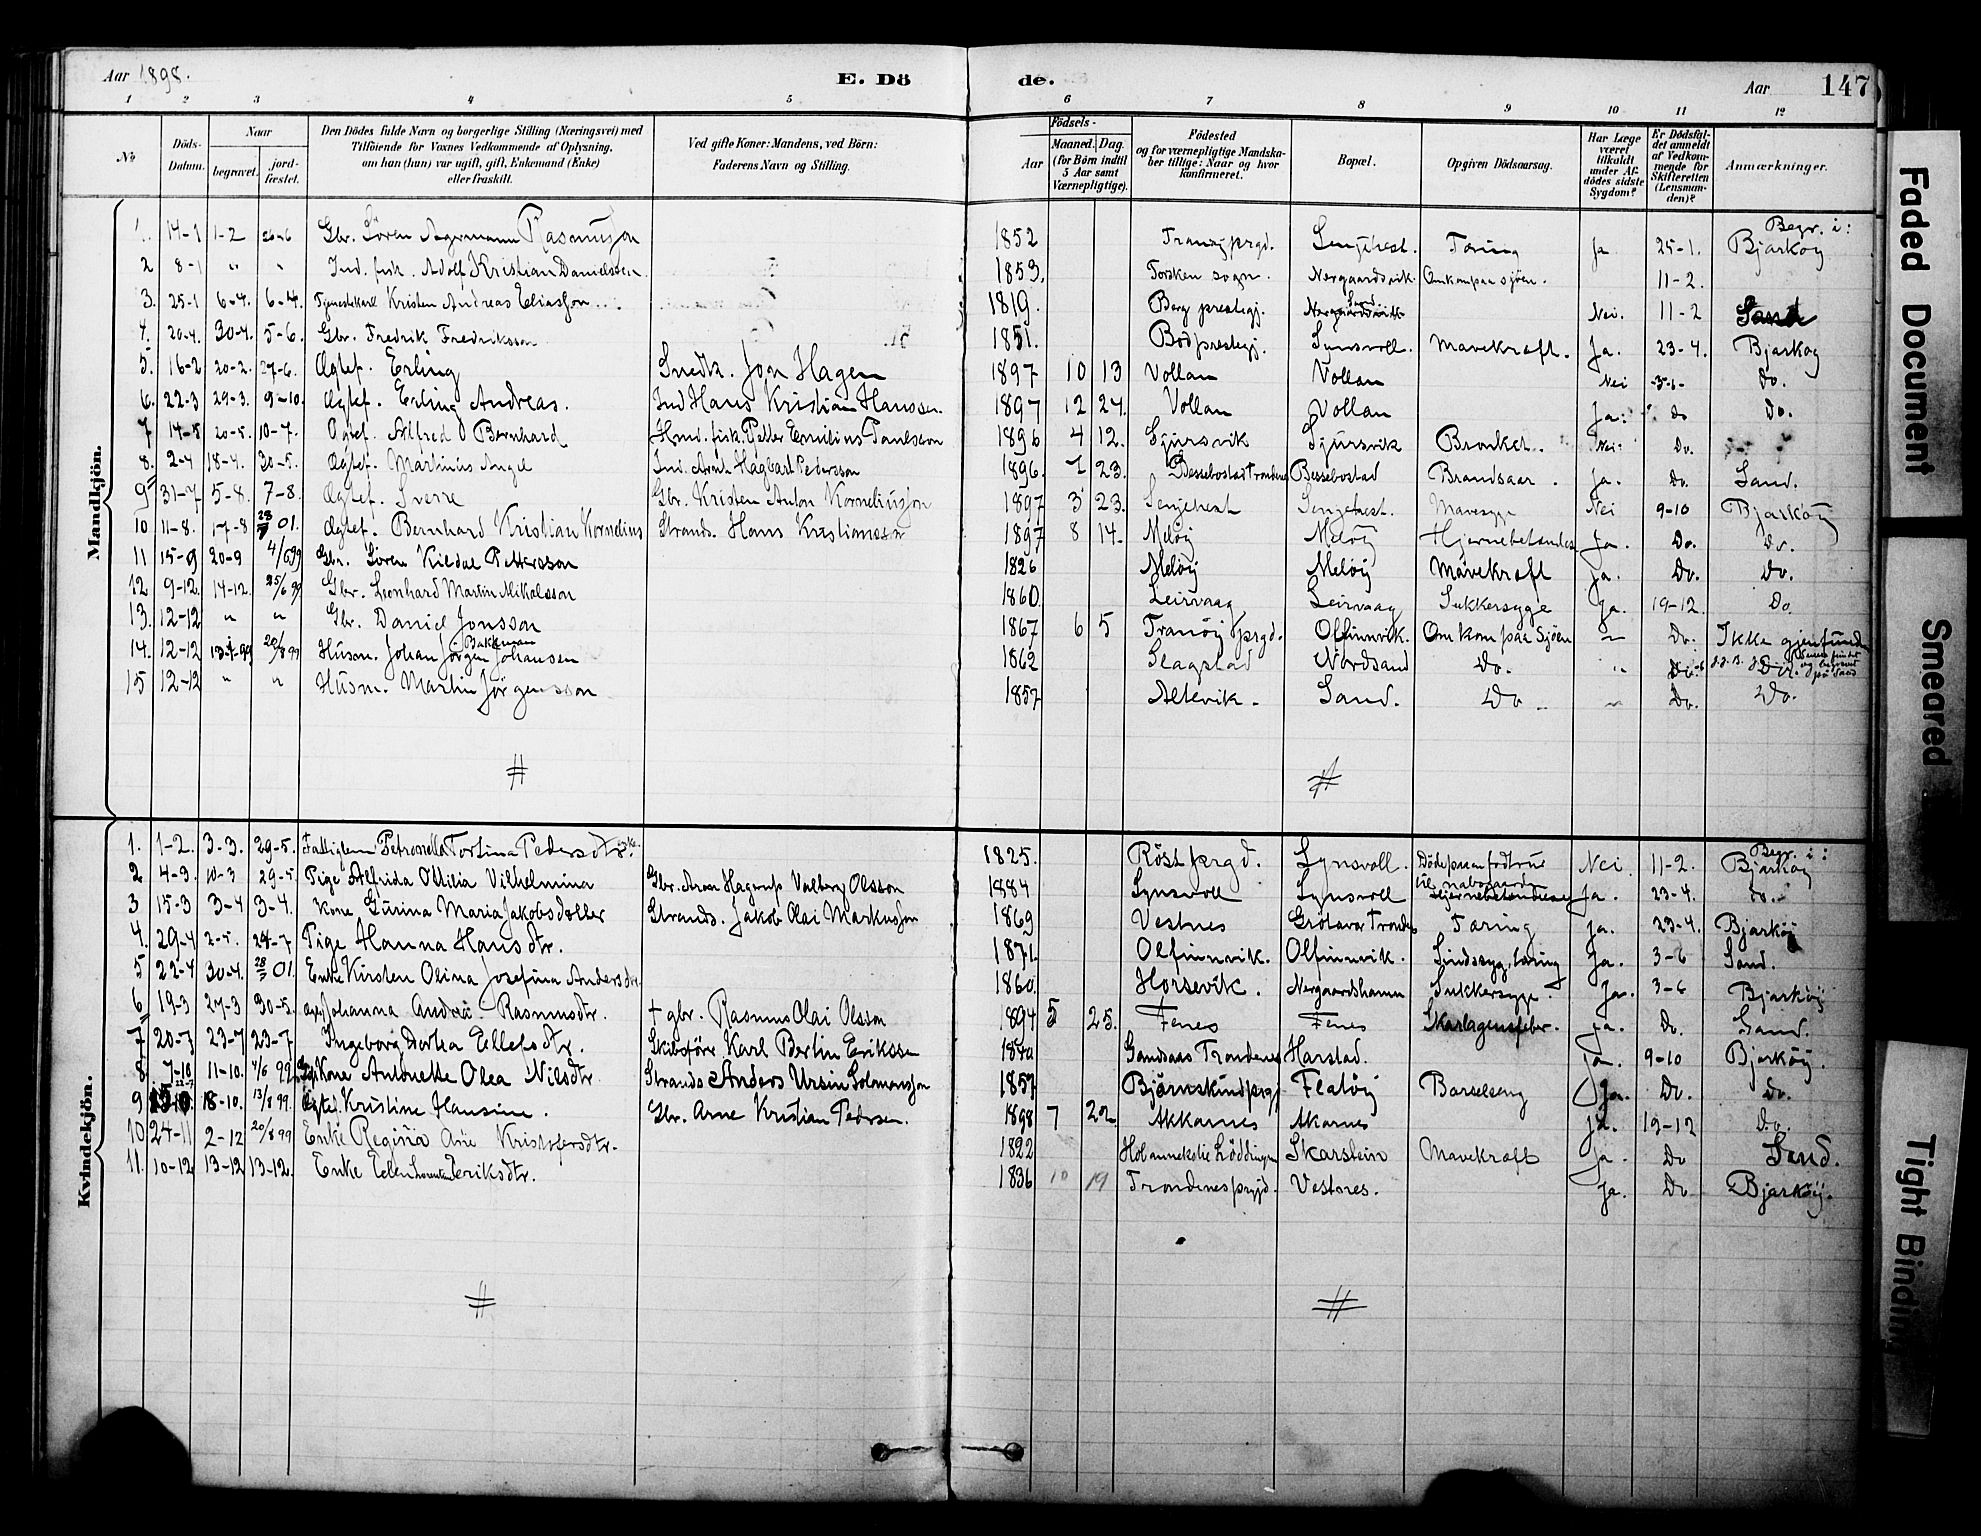 Aar 1898.
E. Döde.
Aar 147
1 2 3 4 5 6 7 8 9 10 11 12
No.
Döds-Datum.
Naar
begravet.
jord-fæstet.
Den Dödes fulde Navn og borgerlige Stilling (Næringsvei) med
Tilföiende for Voxnes Vedkommende af Oplysning,
om han (hun) var ugift, gift, Enkemand (Enke)
eller fraskilt.
Ved gifte Koner: Mandens, ved Börn:
Faderens Navn og Stilling.
Födsels-
Aar
Maaned. Dag.
(for Börn indtil
5 Aar samt
Værnepligtige).
Födested
og for værnepligtige Mandska-
ber tillige: Naar og hvor
konfirmeret.
Bopæl.
Opgiven Dödsaarsag.
Har Læge
været
tilkaldt
under Af-
dödes sidste
Sygdom?
Er Dödsfal-
det anmeldt
af Vedkom-
mende for
Skifteretten
(Lensman-
den)?
Anmærkninger.
Mandkjön.
Begr. i:
1. 14-1 1-2 26-6 Gbr. Sören Agermann Rasmusson 1852 Tranöj prgd. Senjehest. Tæring Ja 25-1. Bjarköy
2 8-1 " " Ind. fisk. Adolf Kristian Danielssen 1853. Torsken sogn. Nergaardsvik Omkom paa sjöen. 11-2.
3. 25-1 6-4. 6-4. Tjenestekarl Kristen Andreas Eliasson 1819. Berg prestegj. Nergaardsvik Sand Nei. 11-2 Sand
4. 20-4. 30-4. 5-6. Gbr. Fredrik Fredriksson 1851. Bod prestegj. Lynsvoll. Mavekræft. Ja. 23-4. Bjarkøy
5. 16-2 20-2. 27-6. Ægtef. Erling Snedk. Jon Hagen 1897 10 13 Vollan Vollan Nei Do.
6. 22-3 29-3. 9-10. Ægtef. Erling Andreas. Ind Hans Kristian Hanssen. 1897 12 24. Vollan Vollan Ja. Do Do.
7 14-5 20-5. 10-7. Ægtef. Alfred Bernhard fisk. Petter Emilius Paulsson 1896 4 12. Gjursvik Gjursvik Bronket. Nei. Do.
8. 2-4 18-4. 30-5. Ægtef. Martinus Angel Ind. Arnt Hagbart Pedersson 1896. 1 23. Bessebostad Trondenes Bessebostad Brandsaar. Ja. Do. Sand.
9 31-7 5-8. 7-8. Ægtef. Sverre Gbr. Kristen Anton Korneliusson 1897 3 23. Senjehest Senjehest. Mavesyge Nei 9-10 Bjarköy
10 11-8. 17-8 01. Ægtef. Bernhard Kristian Kornelius Strands. Hans Kristiansson 1897 8 14. Meløy Meløy Hjernebetændelse Ja. Do. Do.
11 15-9 20-9 4/6 99 Gbr. Sören Kildal Pettersson 1826 Meløy Meløy Mavekræft Ja. Do. Do.
12 9-12. 14-12. 25/6 99 Gbr. Leonhard Martin Mikalsson 1860. Leirvaag Leirvaag Sukkersyge Ja. 19-12. Do.
13. 12-12 " " Gbr. Daniel Jonsson 1867 6 5 Tranöy prgd. Olfinnvik. Omkom paa sjöen " Do. Ikke gjenfunden
14. 12-12 20/8 99 Husm. Johan Jörgen Bakkman Johansen 1862 Slagstad Nordsand Do. " Do. Do. Senere fundet og begravet på Sand
15 12-12 " " Husm. Martin Jörgensson 1857 Altevik. Sand. Do " Do. Do.
Kvindekjön.
Begr. i:
1. 1-2. 3-3. 29-5. Fattiglem Petronella Tortina Pedersdtr. enke. 1825. Röst prgd. Lynsvoll. Döde paa en fodtur til nabogaarden Nei. 11-2. Bjarköy
2 4-3. 10-3 29-5 Pige Alfrida Ottilia Vilhelmina Gbr. Aron Hagerup Valberg Olsson 1884 Lynsvoll Lynsvoll Hjernebetændelse Ja. 23-4. do.
3 15-3 3-4 3-4. Kone Gurina Maria Jakobsdatter Strands. Jakob Olai Markusson 1869 Vestnes Grötavær Trondes Tæring Ja. 23-4. Bjarköy
4. 29-4 2-5. 24-7 Pige Hanna Hansdtr. 1871. Olfinnvik. Olfinnvik. Sindssyg, tæring Ja. 3-6 Sand.
5 22-4 30-4. 01. Enke Kirsten Olina Josefina Andersdtr. 1860. Horsevik. Nergaardshamn Sukkersyge. Ja. 3-6 Bjarköy
6 19-3 27-3 30-5. Johanna Andrea Rasmusdtr. + gbr. Rasmus Olai Olsson 1894 5 25. Fenes Fenes Skarlagensfeber. Ja. Do. Sand.
7 20-7 23-7 23-7. Ingeborg Dorthea Ellefsdtr. Skibsförer Karl Bertin Erikssen 1840 Gandsaas Trondenes Harstad. Ja. 9-10 Bjarköy.
8. 7-10 11-10. 4/6 99. Kone Antonette Olea Nilsdtr. Strands Anders Ursin Solomonsson 1857 Bjarnskind prgj Flatöy Barselseng Ja. Do. Do.
9 18-10. 13/8 99. Ægtef. Kristine Hansine. Gbr. Arne Kristian Pedersen. 1898 7 22 Akkarnes Akarnes Ja. 19-12 Do.
10 24-11 2-12 20/8 99 Enke Regina Ane Kristoffersdtr. 1822 Skarstein Mavekræft Ja. Do Sand.
11. 10-12 13-12 13-12. Enke Ellen Eriksdtr. 1836 10 19 Trondenes prgjd. Vestnes. Ja. Do Bjarköy.
Faded Document
Smeared
Tight Binding